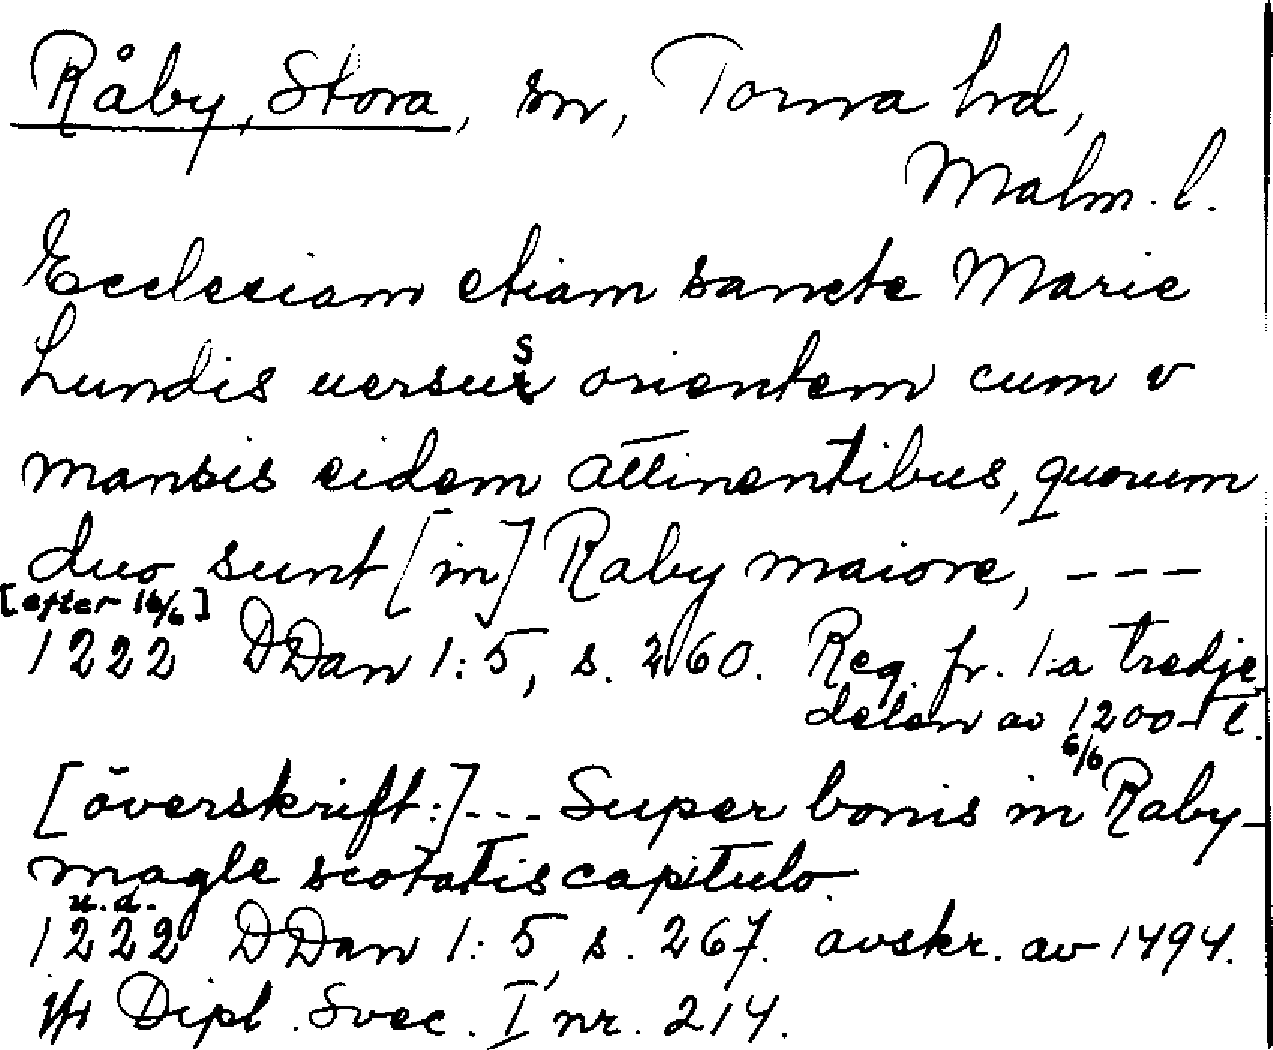 Råby, Stora, sn, Torna hd,
Malm. l.
Ecclesiam etiam sancte Marie
Lundis uersus orientem cum v
mansis eidem attinentibus, quorum
duo sunt [in] Raby maiore, ---
[efter 16/6]
1222 DDan 1:5, s. 260. Reg. fr. 1a tredje
delen av 1200-t.
[överskrift:] --- Super bonis in Raby-
6/6
magle scotatis capitulo.
u.d.
1222 DDan 1:5, s. 267. avskr. av 1494.
jfr Dipl. Svec. I nr. 214.